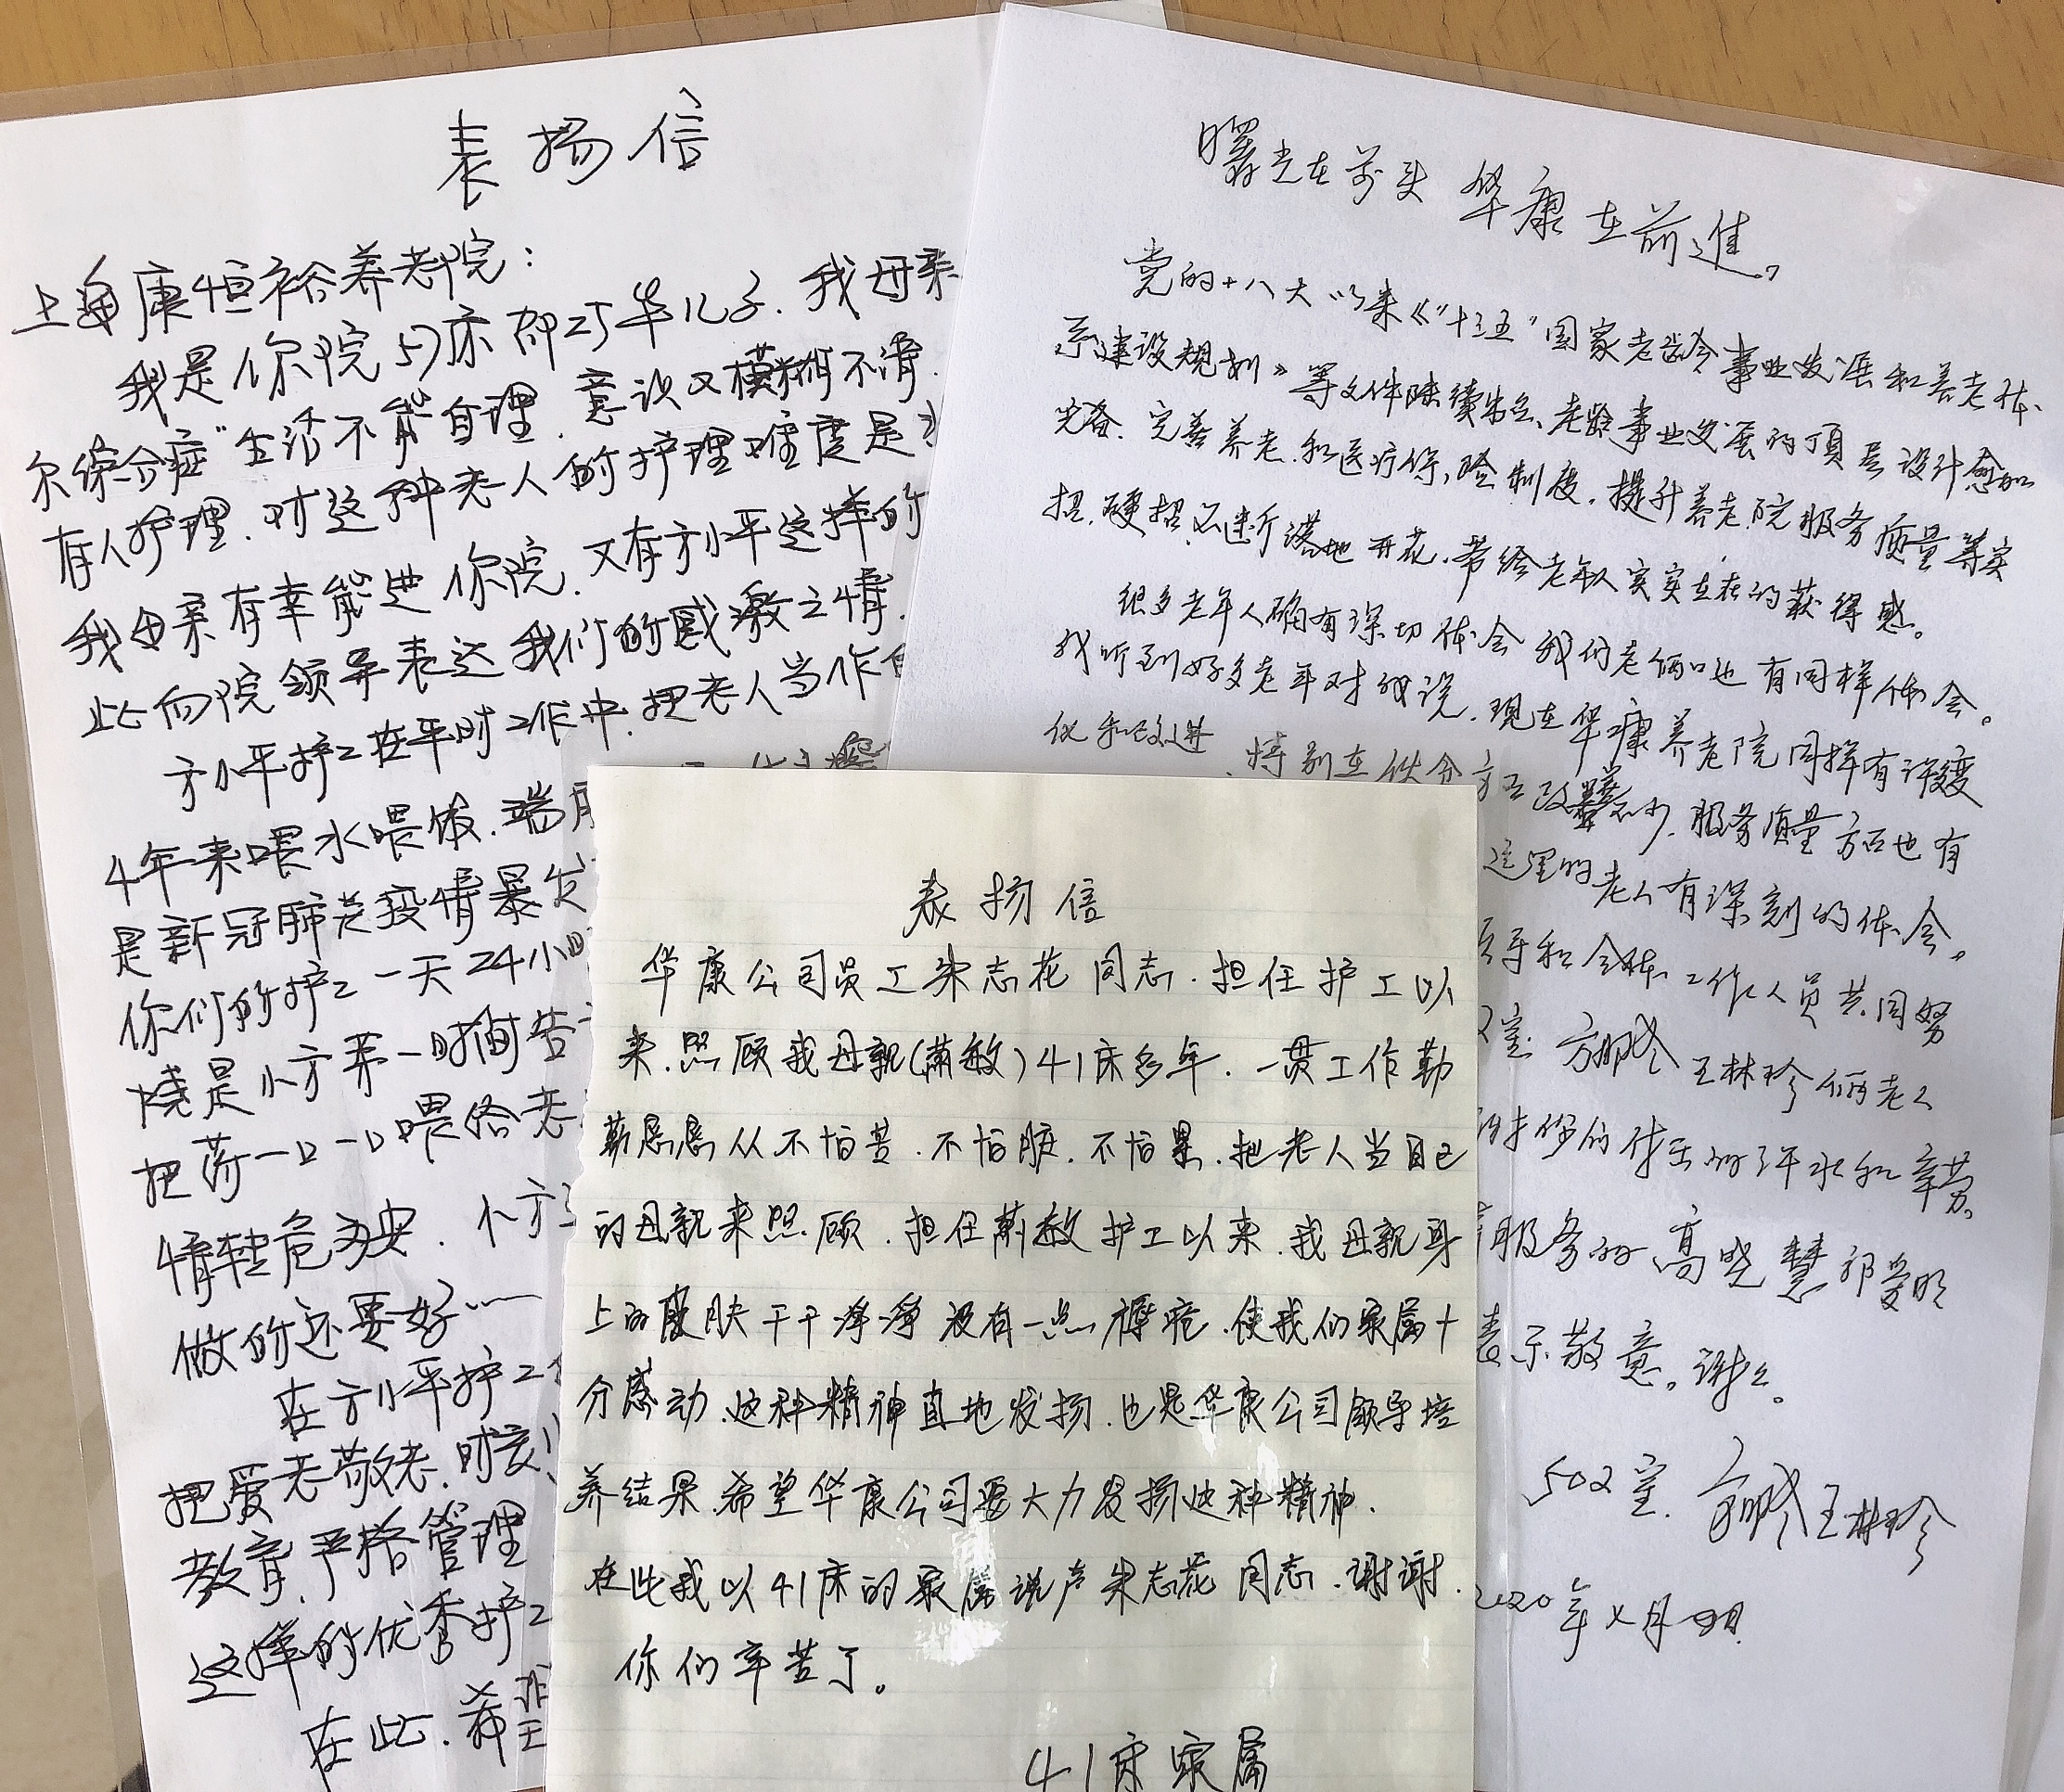 表扬信
上海康恒裕养老院：
我是你院57床 华儿子．我母亲
尔综合症"生活不能自理．意识又模糊不清．
有人护理．对这种老人的护理难度是
我母亲有幸能进你院．又有方小平这样的
此向院领导表达我们的感激之情．
方小平护工在平时工作中．把老人当作自
4年来喂水喂饭．端
是新冠肺炎疫情暴发
你们的护工一天24小时
烧是小方第一时间告
把药一口一口喂给老
情转危为安．小方
做的还要好……
在方小平护工
把爱老敬老．时刻
教育，严格管理
这样的优秀护工
在此．希望
曙光在前头 华康在前進。
党的十八大以来《"十三五"国家老龄事业发展和养老体
系建设规划》等文件陸续出台、老龄事业发展的頂层设计愈加
完备．完善养老．和医疗保险制度．提升养老院服务质量等实
招．硬招．不断落地开花．带给老年人实实在在的获得感。
很多老年人确有深切体会 我们老俩口也有同样体会。
我听到好多老年对我说．现在华康养老院同样有许变
化和改进．特别在伙食方面改善不少．服务质量方面也有
这里的老人有深刻的体会。
导和全体工作人员共同努
室 王林珍俩老人
你们付出的汗水和辛劳。
服务的高晓慧
表示敬意。谢谢。
502室． 王林珍
2020年
表扬信
华康公司员工朱志花同志．担任护工以
来．照顾我母親( 敏)41床多年．一贯工作勤
勤恳恳从不怕苦．不怕脏．不怕累．把老人当自己
的母親来照顾．担任 敏护工以来．我母親身
上的皮肤干干净净没有一点褥疮．使我们家属十
分感动．这种精神真地发扬．也是华康公司领导培
养结果．希望华康公司要大力发扬这种精神．
在此我以41床的家属说声朱志花同志．谢谢．
你们辛苦了。
41床家属